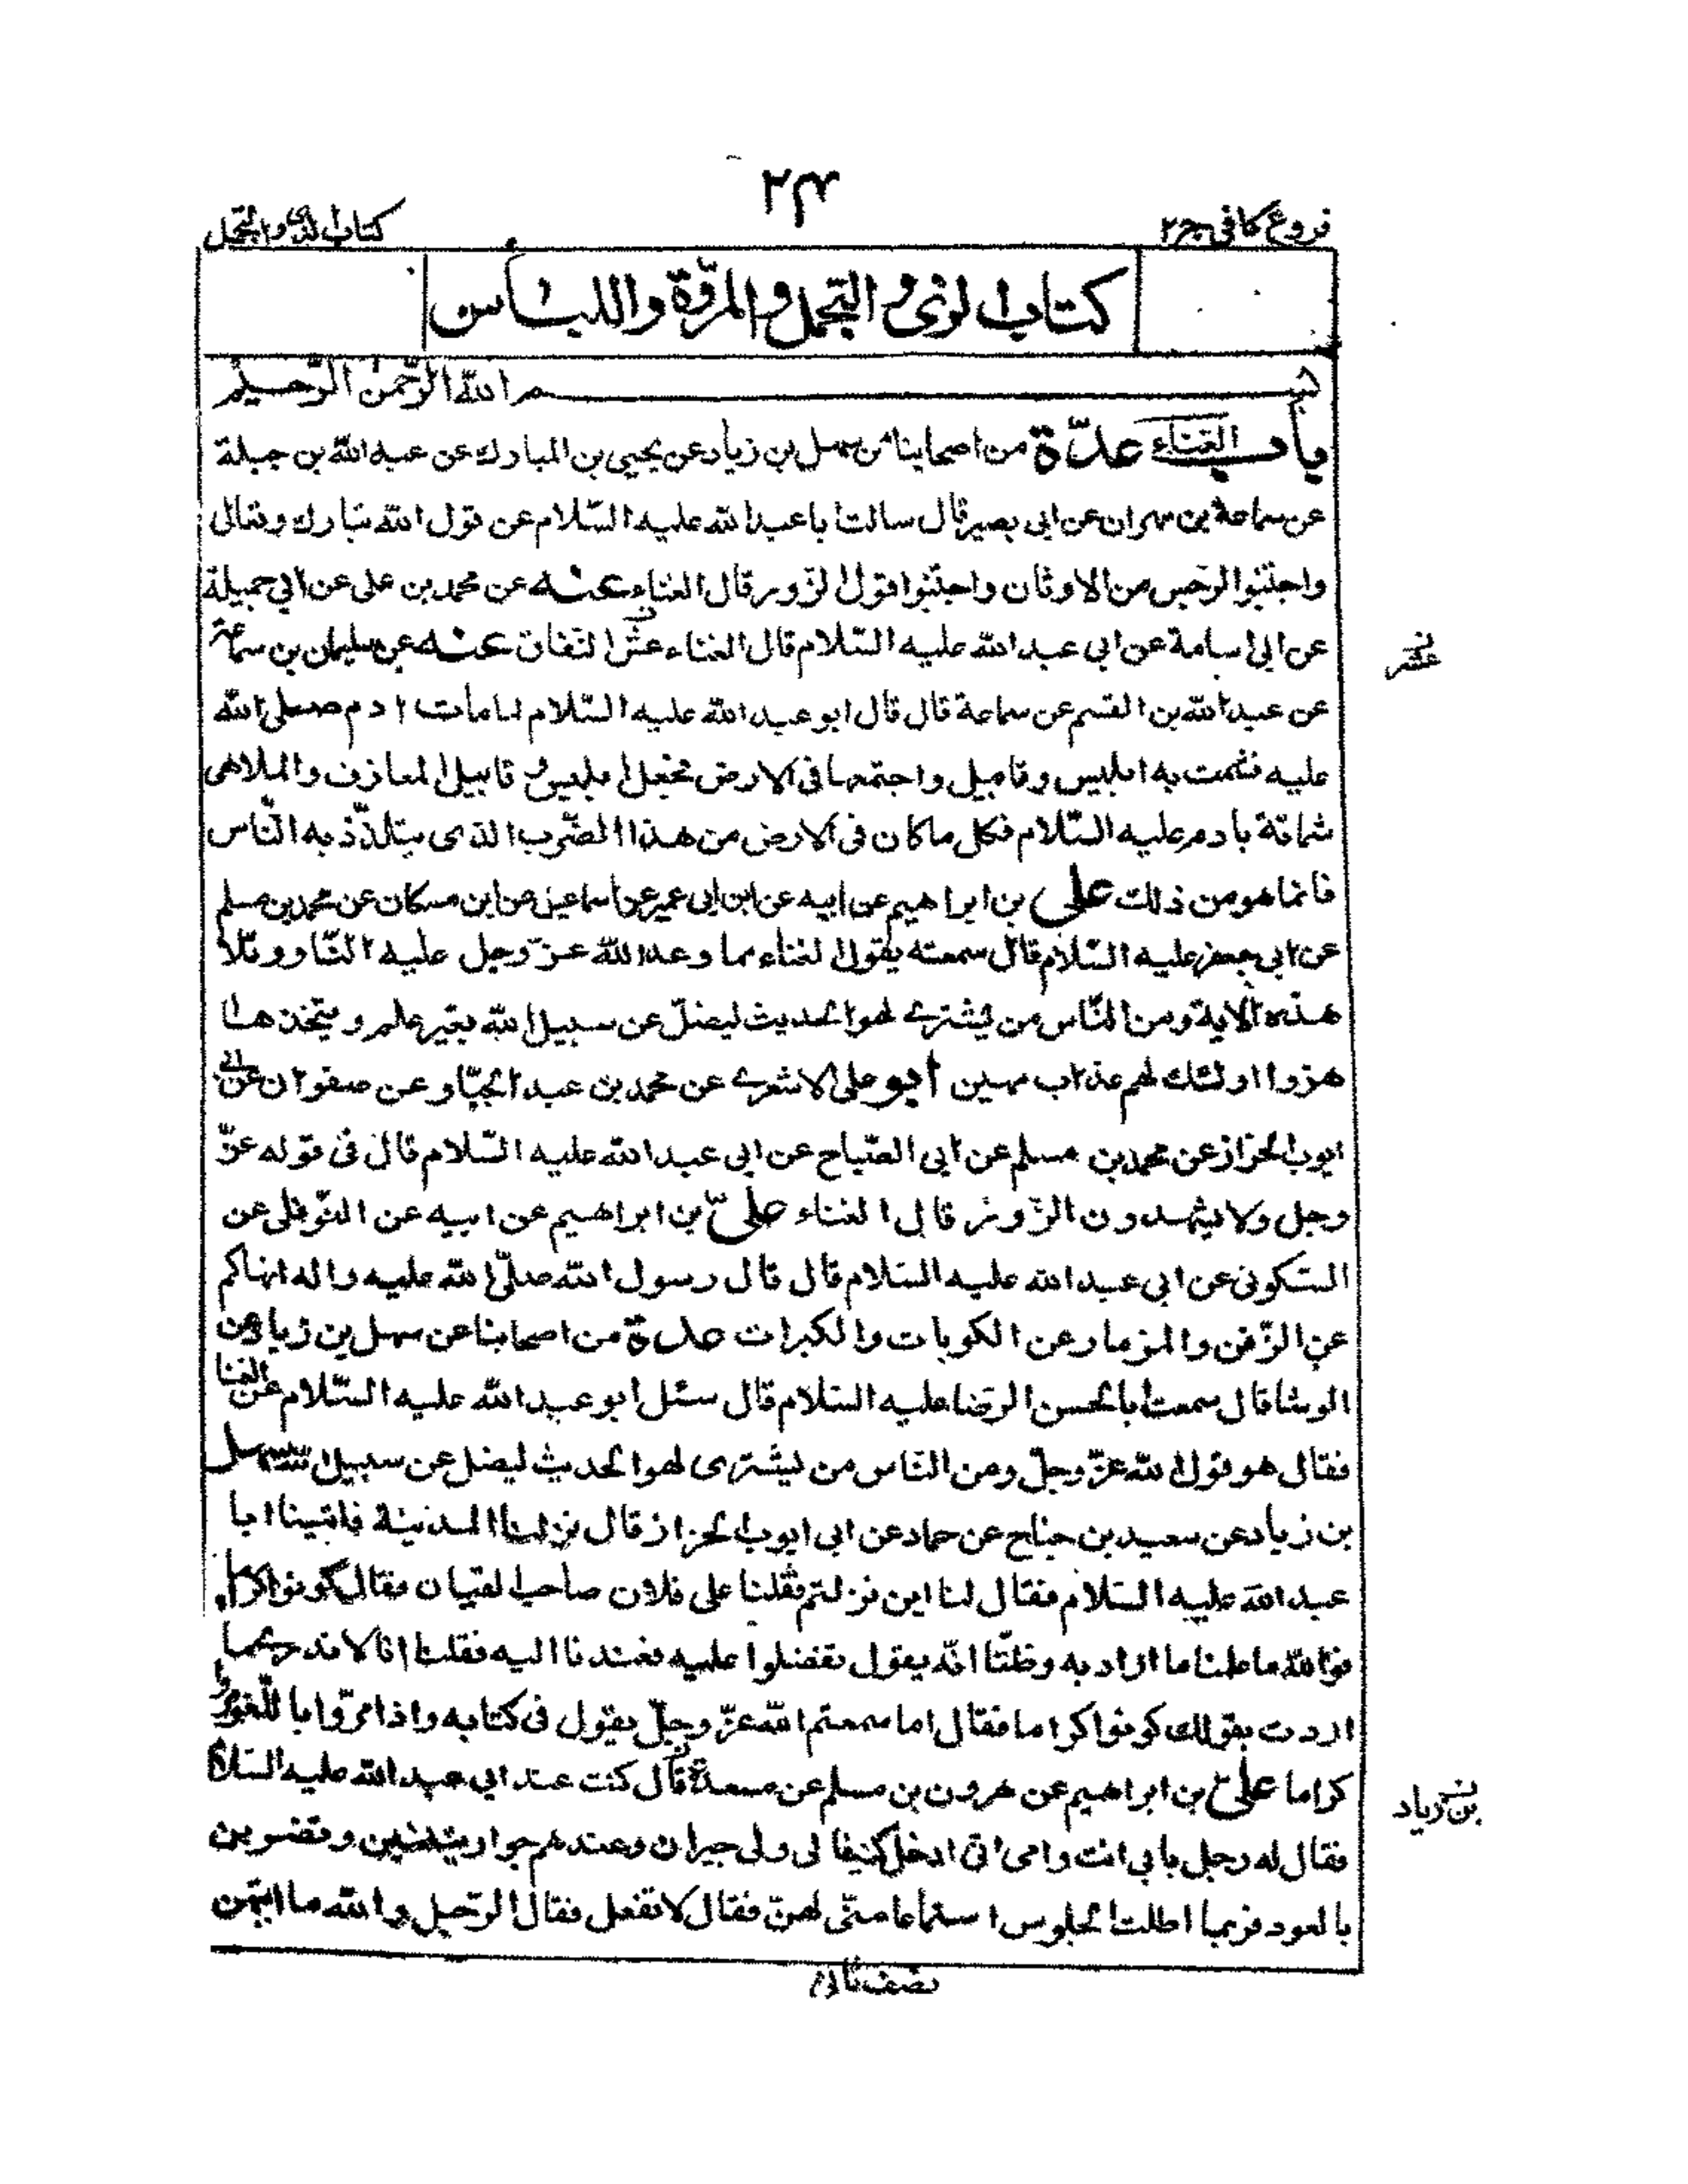 ٢٣
فروع كافى ج٢
كتاب الزى والتجمل
كتاب الزى و التجمل و المروّة و اللباس
بسم الله الرّحمن الرّحيم
باب الغناء عدّة من اصحابنا عن سهل بن زياد عن يحيى بن المبارك عن عبد الله بن جبلة
عن سماعة بن مهران عن ابى بصير قال سالت ابا عبد الله عليه السّلام عن قول الله تبارك وتعالى
واجتنبوا الرّجس من الاوثان واجتنبوا قول الزّور قال الغناء عنه عن محمد بن على عن ابي جميلة
عن ابى اسامة عن ابى عبد الله عليه السّلام قال الغناء عشّ النّفاق عنه عن سليمان بن سماعة
عن عبد الله بن القسم عن سماعة قال قال ابو عبد الله عليه السّلام لما مات ادم صلى الله
عليه فشمت به ابليس وقابيل واجتمعا فى الارض فجعل ابليس و قابيل المعازف والملاهى
شماتة بادم عليه السّلام فكل ما كان فى الارض من هذا الضّرب الذى يتلذّذ به النّاس
فانما هو من ذلك على بن ابراهيم عن ابيه عن ابن ابى عمير عن اسماعيل عن ابن مسكان عن محمد بن مسلم
عن ابي جعفر عليه السّلام قال سمعته يقول الغناء مما وعد الله عزّ وجل عليه النّار وتلا
هذه الاية ومن النّاس من يشترى لهو الحديث ليضلّ عن سبيل الله بغير علم ويتخذها
هزوا اولئك لهم عذاب مهين أبو على الاشعرى عن محمد بن عبد الجبّار عن صفوان عن ابى
ايوب الخزاز عن محمد بن مسلم عن ابى الصّباح عن ابى عبد الله عليه السّلام قال فى قوله عزّ
وجل ولا يشهدون الزّور قال الغناء علىّ بن ابراهيم عن ابيه عن النّوفلى عن
السّكونى عن ابى عبد الله عليه السّلام قال قال رسول الله صلّى الله عليه واله انهاكم
عن الزّفن والمزمار وعن الكوبات والكبرات عدة من اصحابنا عن سهل بن زياد عن
الوشا قال سمعت ابا الحسن الرضا عليه السّلام قال سئل ابو عبد الله عليه السّلام عن الغنا
فقال هو قول الله عزّ وجلّ ومن النّاس من يشترى لهو الحديث ليضل عن سبيل الله سهل
بن زياد عن سعيد بن جناح عن حماد عن ابى ايوب الخزاز قال نزلنا المدينة فاتينا ابا
عبد الله عليه السّلام فقال لنا اين نزلتم فقلنا على فلان صاحب القيان فقال كونوا كراما
فوالله ما علمنا ما اراد به وظنّنا انّه يقول تفضلوا عليه فعدنا اليه فقلنا انا لا ندرى ما
اردت بقولك كونوا كراما فقال اما سمعتم الله عزّ وجلّ يقول فى كتابه واذا مرّوا باللّغو مرّوا
كراما علىّ بن ابراهيم عن هرون بن مسلم عن مسعدة قال كنت عند ابي عبد الله عليه السّلام
فقال له رجل بابى انت وامى انى ادخل كنيفا لى ولى جيران وعندهم جوار يتغنين ويضربن
بالعود فربما اطلت الجلوس استماعا منّى لهنّ فقال لا تفعل فقال الرّجل والله ما اتيهن
بن زياد